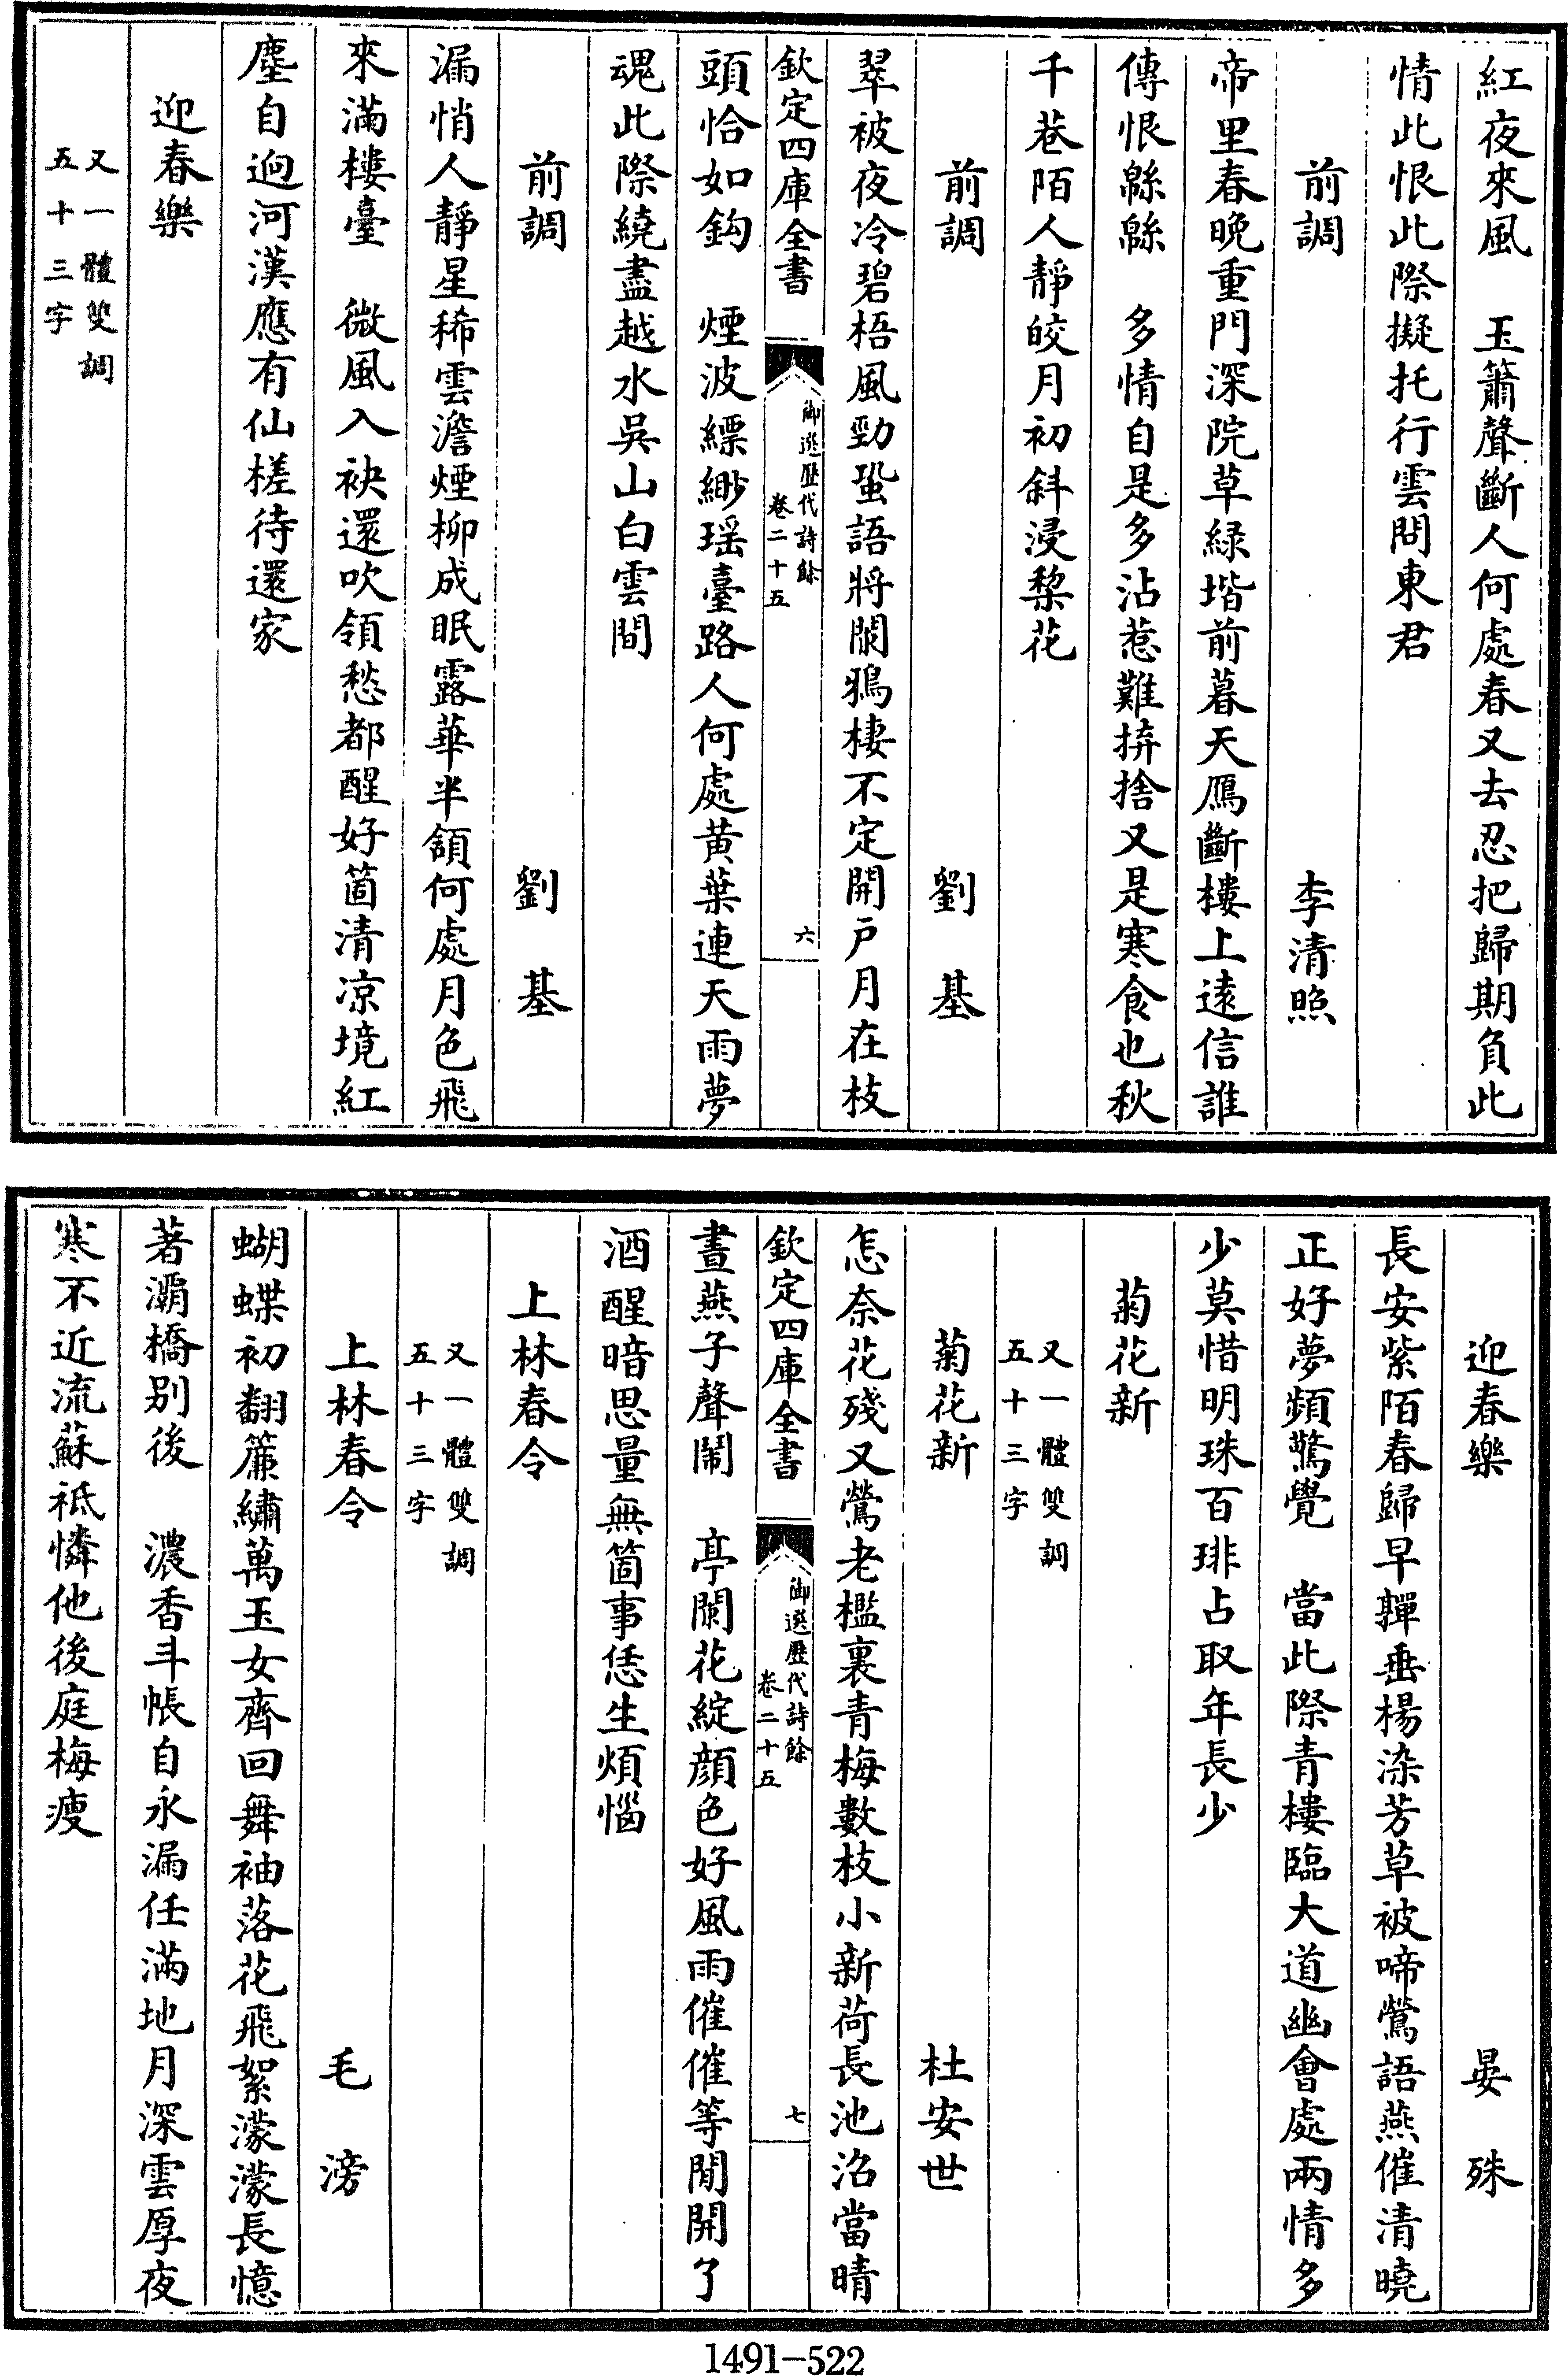 紅夜來風　玉簫聲斷人何處春又去忍把歸期負此
情此恨此際擬托行雲問東君
前調　李清照
帝里春晚重門深院草緑堦前暮天鴈斷樓上遠信誰
傳恨緜緜　多情自是多沾惹難拚捨又是寒食也秋
千巷陌人靜皎月初斜浸棃花
前調　劉　基
翠被夜冷碧梧風勁蛩語將闌鴉棲不定開戸月在枝
欽定四庫全書
御選歷代詩餘
卷二十五
六
頭恰如鈎　煙波縹緲瑶臺路人何處黄葉連天雨夢
魂此際繞盡越水吳山白雲間
前調　劉　基
漏悄人靜星稀雲澹煙柳成眠露華半頷何處月色飛
來滿樓臺　微風入袂還吹領愁都醒好箇清凉境紅
塵自逈河漢應有仙槎待還家
迎春樂
又一體雙調
五十三字
迎春樂　晏　殊
長安紫陌春歸早嚲垂楊染芳草被啼鶯語燕催清曉
正好夢頻驚覺　當此際青樓臨大道幽會處兩情多
少莫惜明珠百琲占取年長少
菊花新
又一體雙調
五十三字
菊花新　杜安世
怎奈花殘又鶯老檻裏青梅數枝小新荷長池沼當晴
欽定四庫全書
御選歷代詩餘
卷二十五
七
晝燕子聲鬧　亭闌花綻顔色好風雨催催等閒開了
酒醒暗思量無箇事恁生煩惱
上林春令
又一體雙調
五十三字
上林春令　毛　滂
蝴蝶初翻簾繡萬玉女齊回舞袖落花飛絮濛濛長憶
著灞橋别後　濃香斗帳自永漏任滿地月深雲厚夜
寒不近流蘇祇憐他後庭梅瘦
1491-522